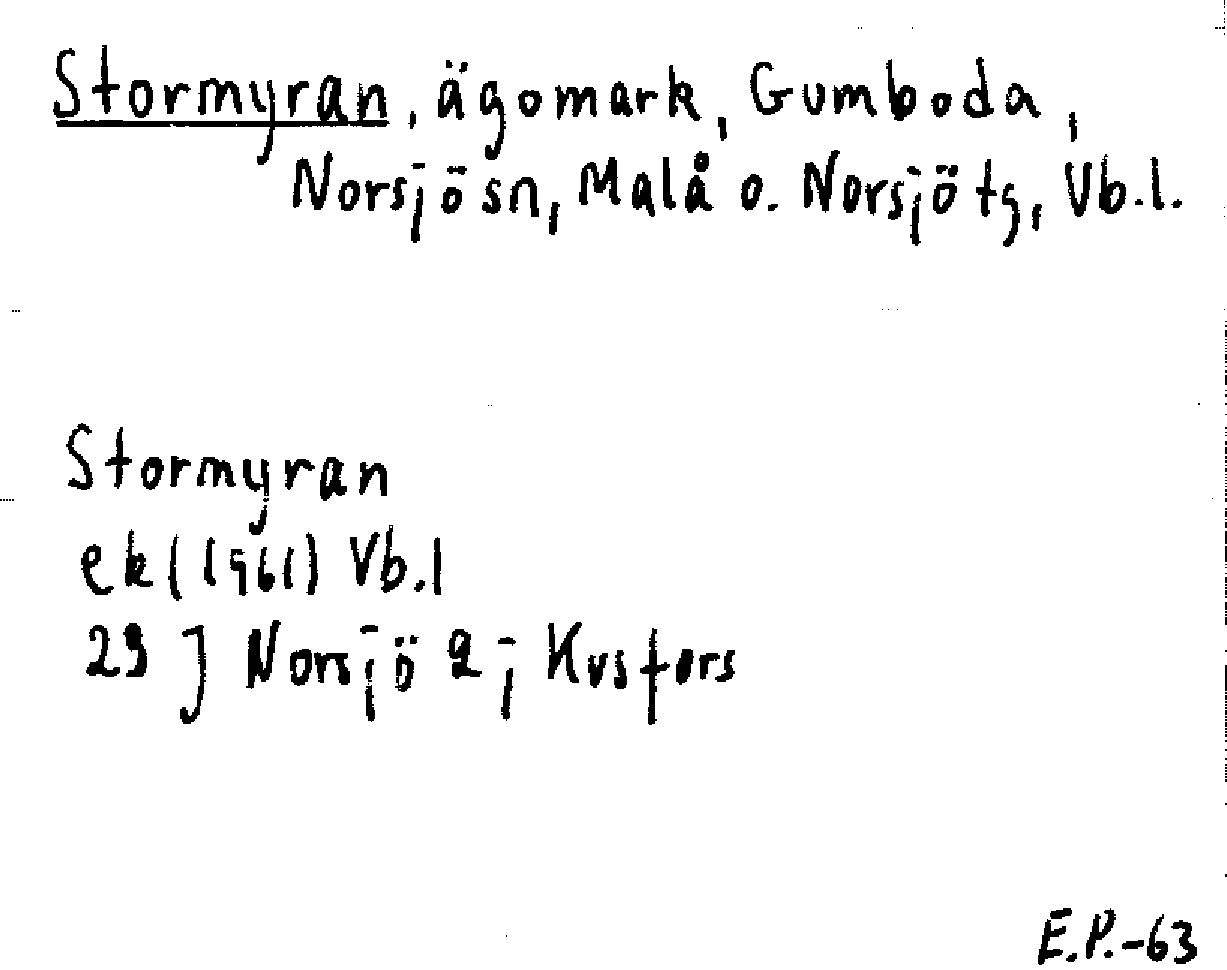 Stormyran, ägomark, Gumboda,
Norsjö sn, Malå o. Norsjö tg, Vb.l.
Stormyran
ek (1961) Vb.l
23 J Norsjö 2 j Kusfors
E.P.-63